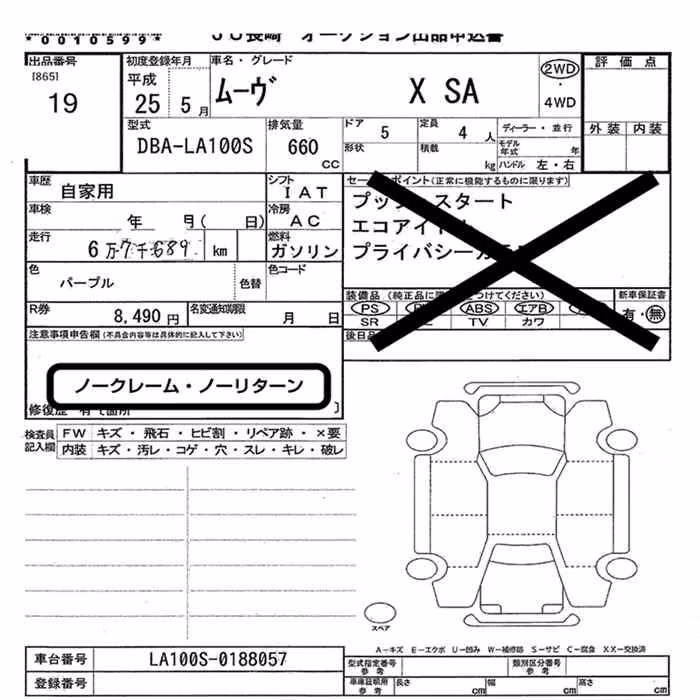 *0010599**
JU長崎 オークション出品申込書
出品番号 初度登録年月 車名・グレード 評価点
[865] 平成 2WD
19 25 5月 ムーヴ X SA ・
4WD
型式 排気量 ドア 5 定員 4人 ディーラー・並行 外装 内装
DBA-LA100S 660 cc 形状 積載 kg モデル年式 年
ハンドル 左・右
車歴 自家用 シフト IAT セールスポイント(正常に機能するものに限ります)
車検 年 月( 日) 冷房 AC プッシュスタート
エコアイドル
走行 6万7千689 km 燃料 ガソリン プライバシーガラス
色 パープル 色替 色コード
装備品(純正品に限り つけてください) 新車保証書
R券 8,490円 名変通知期限 月 日 PS ABS エアB 有・無
SR TV カワ
注意事項申告欄(不具合内容等は具体的に記入して下さい) 後日品
ノークレーム・ノーリターン
修復歴 有 箇所 ]
検査員記入欄 FW キズ・飛石・ヒビ割・リペア跡・×要
内装 キズ・汚レ・コゲ・穴・スレ・キレ・破レ
スペア
A-キズ E-エクボ U-凹み W-補修跡 S-サビ C-腐食 XX-交換済
車台番号 LA100S-0188057 型式指定番号 参考 類別区分番号 参考
登録番号 車庫証明用 参考 長さ cm 幅 cm 高さ cm